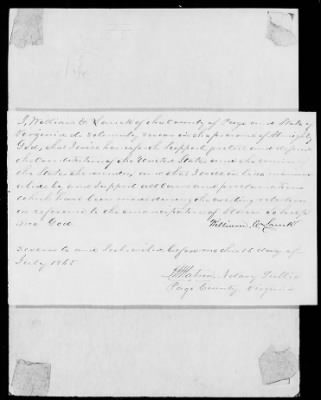 I, William C. Lauck of the county of Page and State of
Virginia do solemnly swear in the presence of Almighty
God, that I will henceforth support, protect and defend
the Constitution of the United States and the union of
the States thereunder, and that I will in like manner
abide by and support all laws and proclamations
which have been made during the existing rebellion
in reference to the emancipation of slaves so help
me God. William C. Lauck
Sworn to and Subscribed before me this day of
July 1865
Notary Public
Page County Virginia